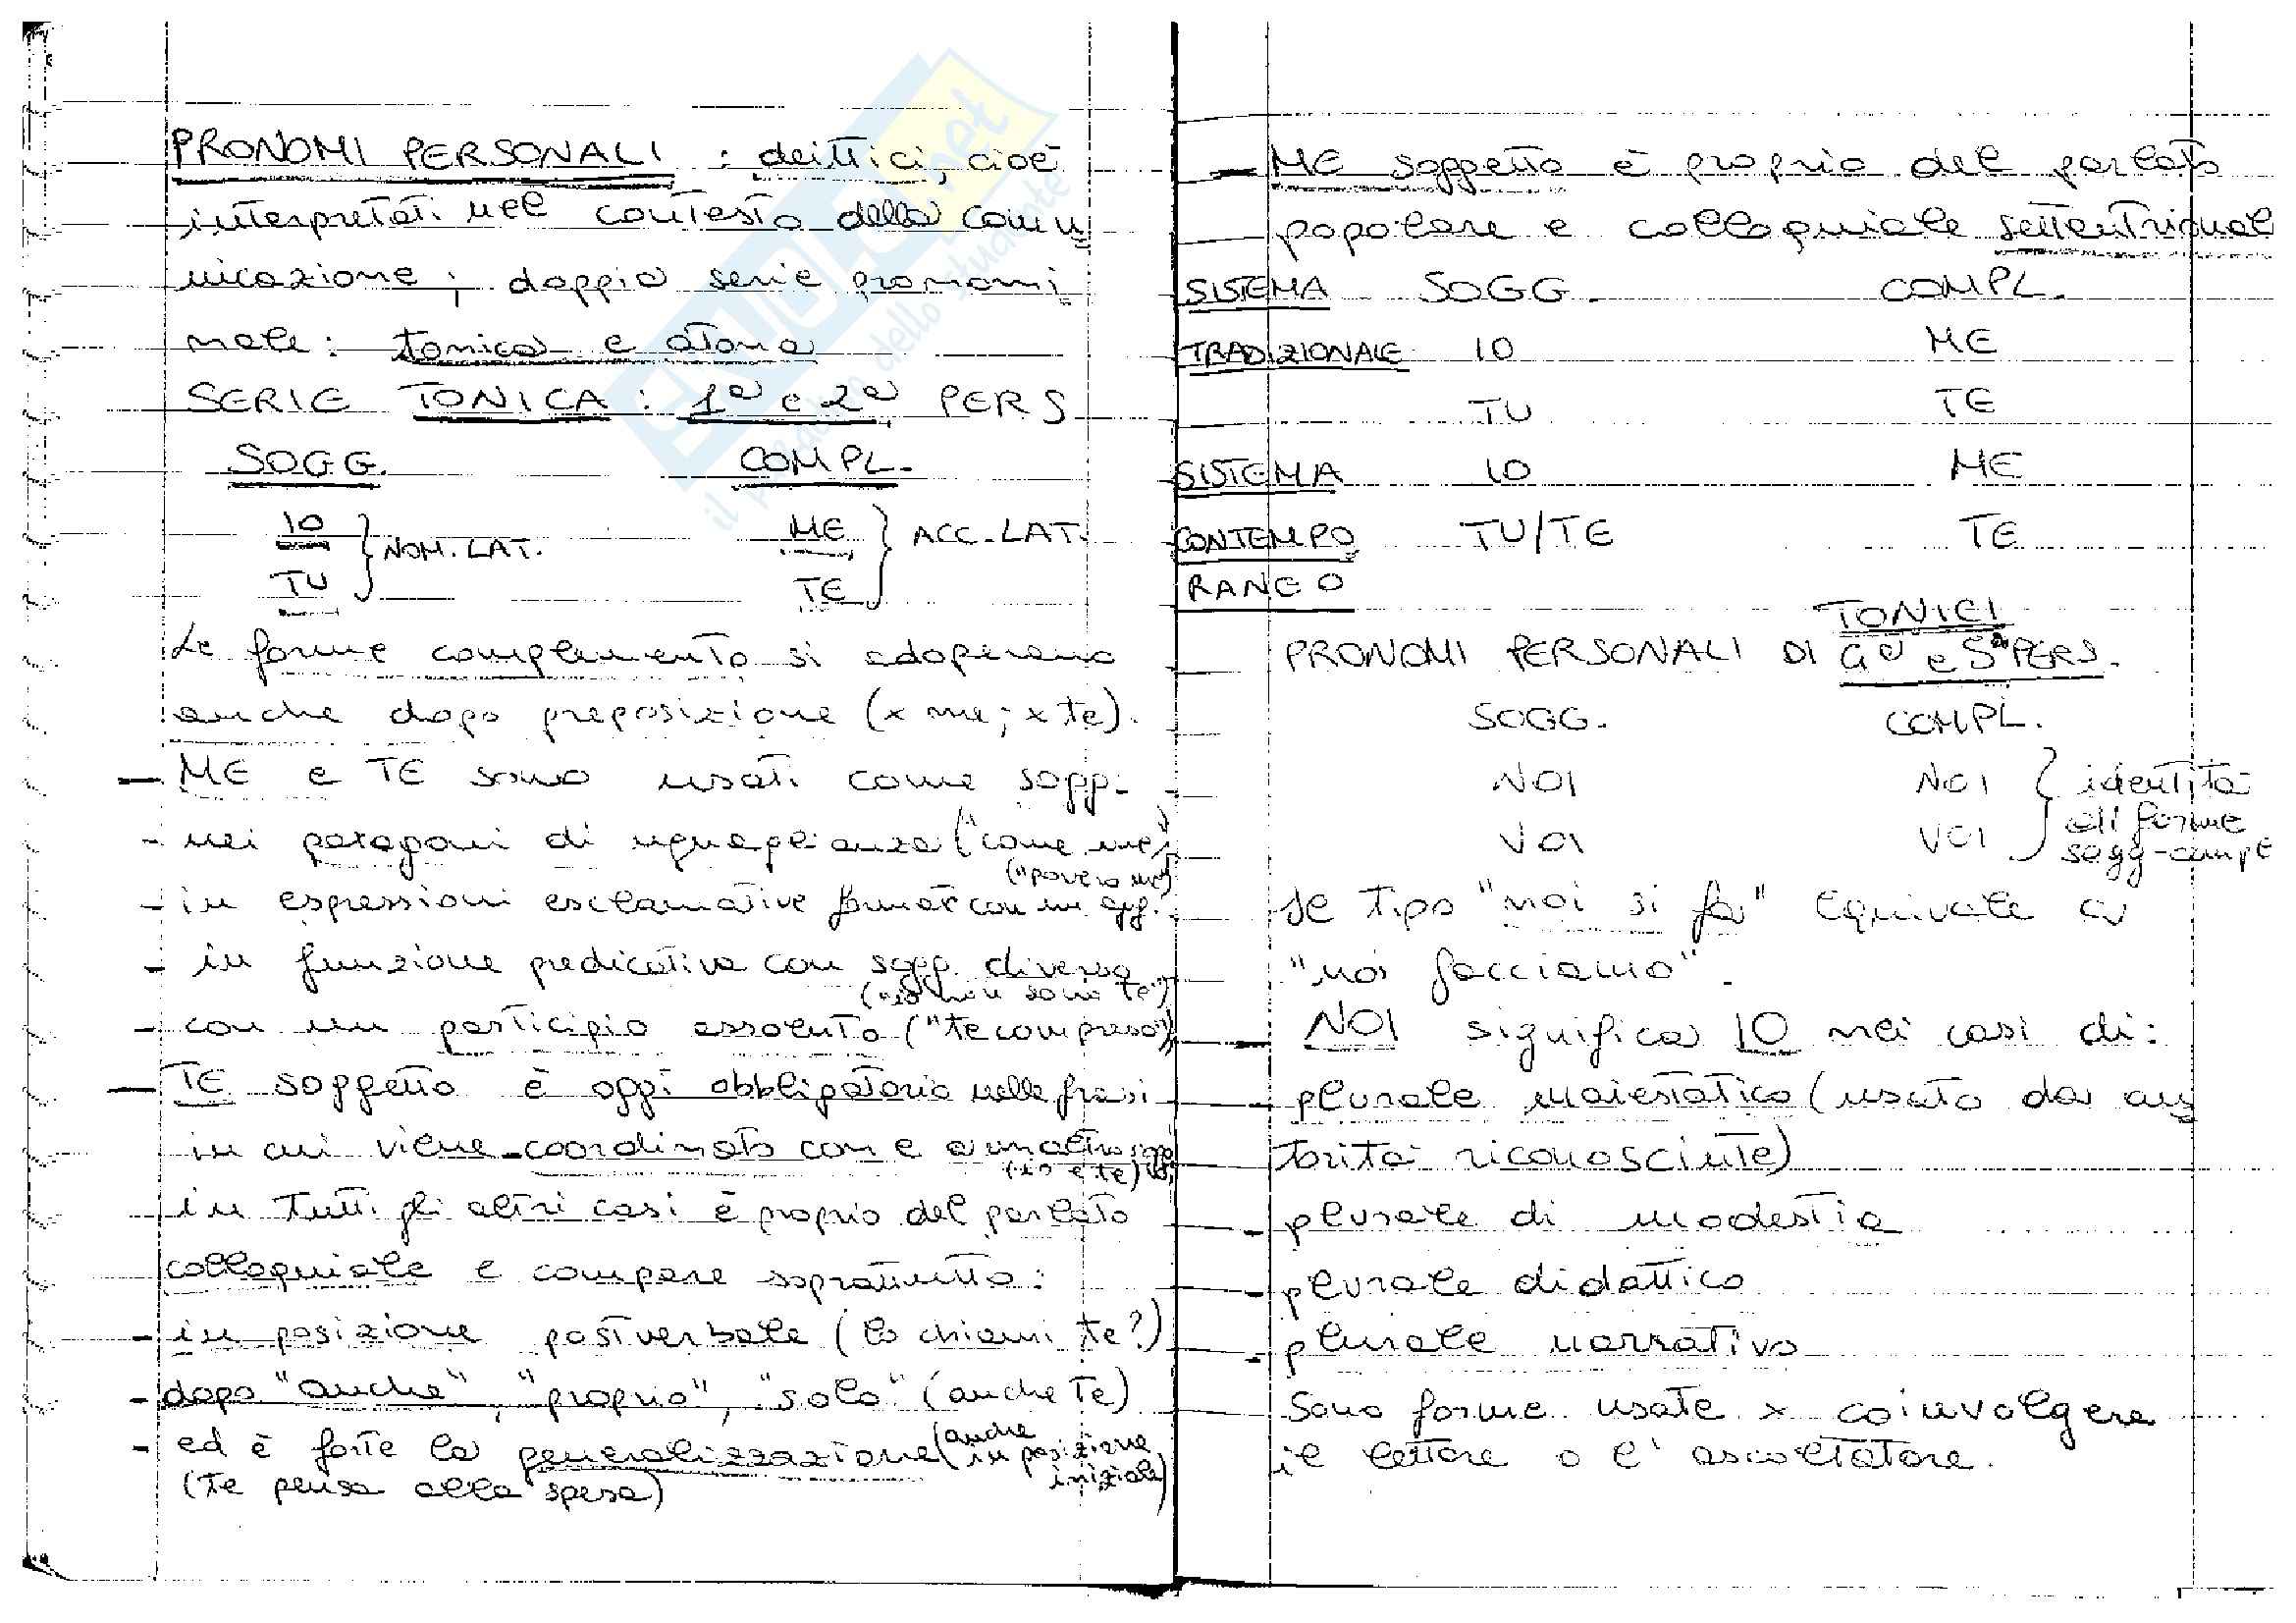 PRONOMI PERSONALI : deittici, cioè
interpretati nel contesto della comu
nicazione; doppia serie pronomi
nale: tonica e atona
SERIE TONICA : 1ª e 2ª PERS
SOGG. COMPL.
IO } NOM. LAT. ME } ACC. LAT.
TU TE
Le forme complemento si adoperano
anche dopo preposizione (x me; x te).
- ME e TE sono usati come sogg:
- nei paragoni di uguaglianza ("come me")
("povero me")
- in espressioni esclamative format con un agg.
- in funzione predicativa con sogg. diverso
("io non sono te")
- con un participio assoluto ("te compreso")
- TE soggetto è oggi obbligatorio nelle frasi
in cui viene coordinato con e a un altro sogg
(io e te)
in tutti gli altri casi è proprio del parlato
colloquiale e compare soprattutto:
- in posizione postverbale (lo chiami te?)
- dopo "anche", "proprio", "solo" (anche te)
- ed è forte la generalizzazione (anche in posizione iniziale)
(te pensa alla spesa)
- ME soggetto è proprio del parlato
popolare e colloquiale settentrional
SISTEMA SOGG. COMPL.
TRADIZIONALE IO ME
TU TE
SISTEMA IO ME
CONTEMPO TU/TE TE
RANEO
TONICI
PRONOMI PERSONALI DI 4ª e 5ª PERS.
SOGG. COMPL.
NOI NOI } identità
VOI VOI di forme
sogg-compl
Il tipo "noi si fa" equivale a
"noi facciamo".
- NOI significa IO nei casi di:
- plurale maiestatico (usato da au
torità riconosciute)
- plurale di modestia
- plurale didattico
- plurale narrativo
Sono forme usate x coinvolgere
il lettore o l'ascoltatore.
il paradiso dello studente